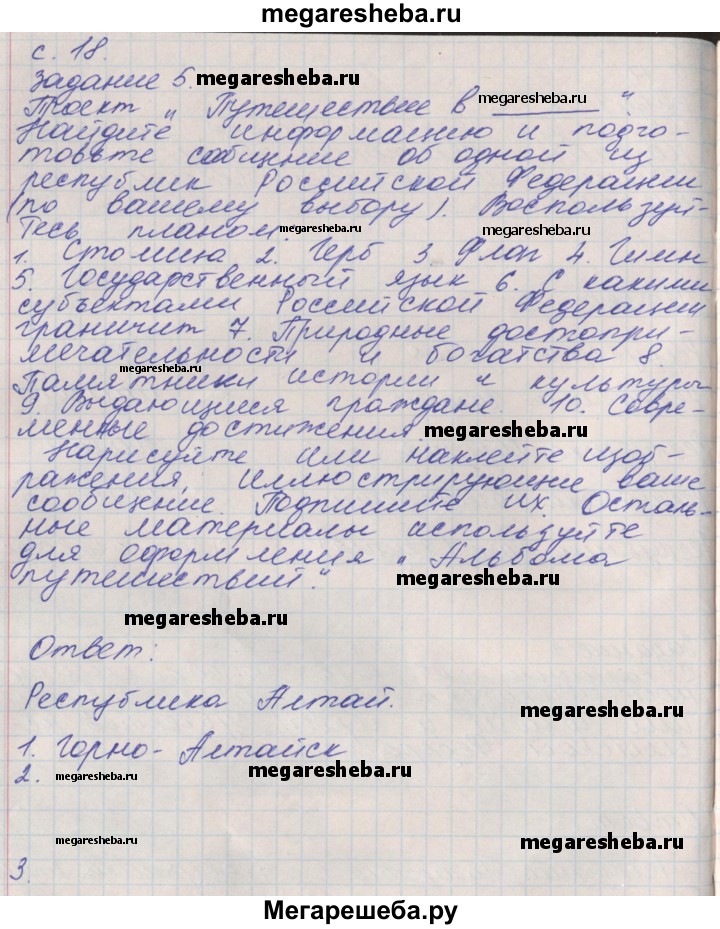 megaresheba.ru
с. 18.
Задание 5. megaresheba.ru
Проект „ Путешествие в ______ “ megaresheba.ru
Найдите информацию и подго-
товьте собщение об одной из
республик Российской Федерации
(по вашему выбору). Воспользуй-
тесь планом megaresheba.ru megaresheba.ru
1. Столица 2. Герб 3. Флаг 4. Гимн
5. Государственный язык 6. С какими
субъектами Российской Федерации
граничит 7. Природные достопри-
мечательности и богатства 8.
megaresheba.ru
Памятники истории и культуры
9. Выдающиеся граждане. 10. Совре-
менные достижения. megaresheba.ru
Нарисуйте или наклейте изоб-
ражения, иллюстрирующие ваше
сообщение. Подпишите их. Осталь-
ные материалы используйте
для оформления „ Альбома
путешествий“. megaresheba.ru
megaresheba.ru
Ответ:
Республика Алтай.
megaresheba.ru
1. Горно-Алтайск
2. megaresheba.ru megaresheba.ru
megaresheba.ru megaresheba.ru
3.
Мегарешеба.ру